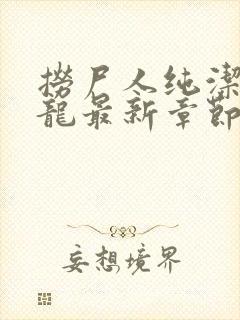 撈尸人纯潔
龍最新章節
妄想境界